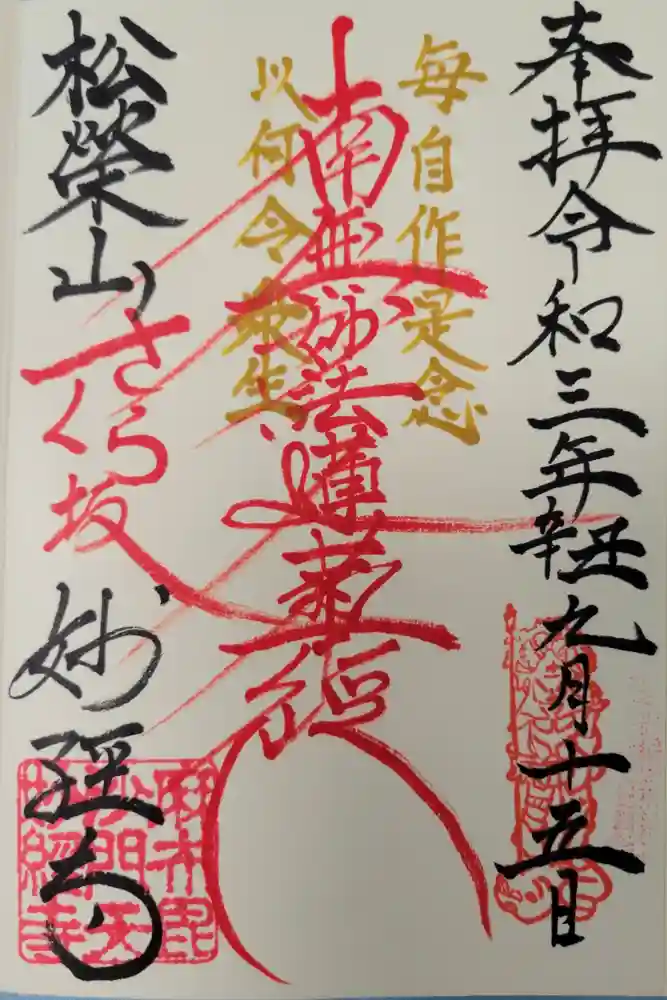 奉拝 令和三年辛丑九月十五日
毎自作是念
南無妙法蓮華経
以何令衆生
松榮山
さくら坂
妙経寺